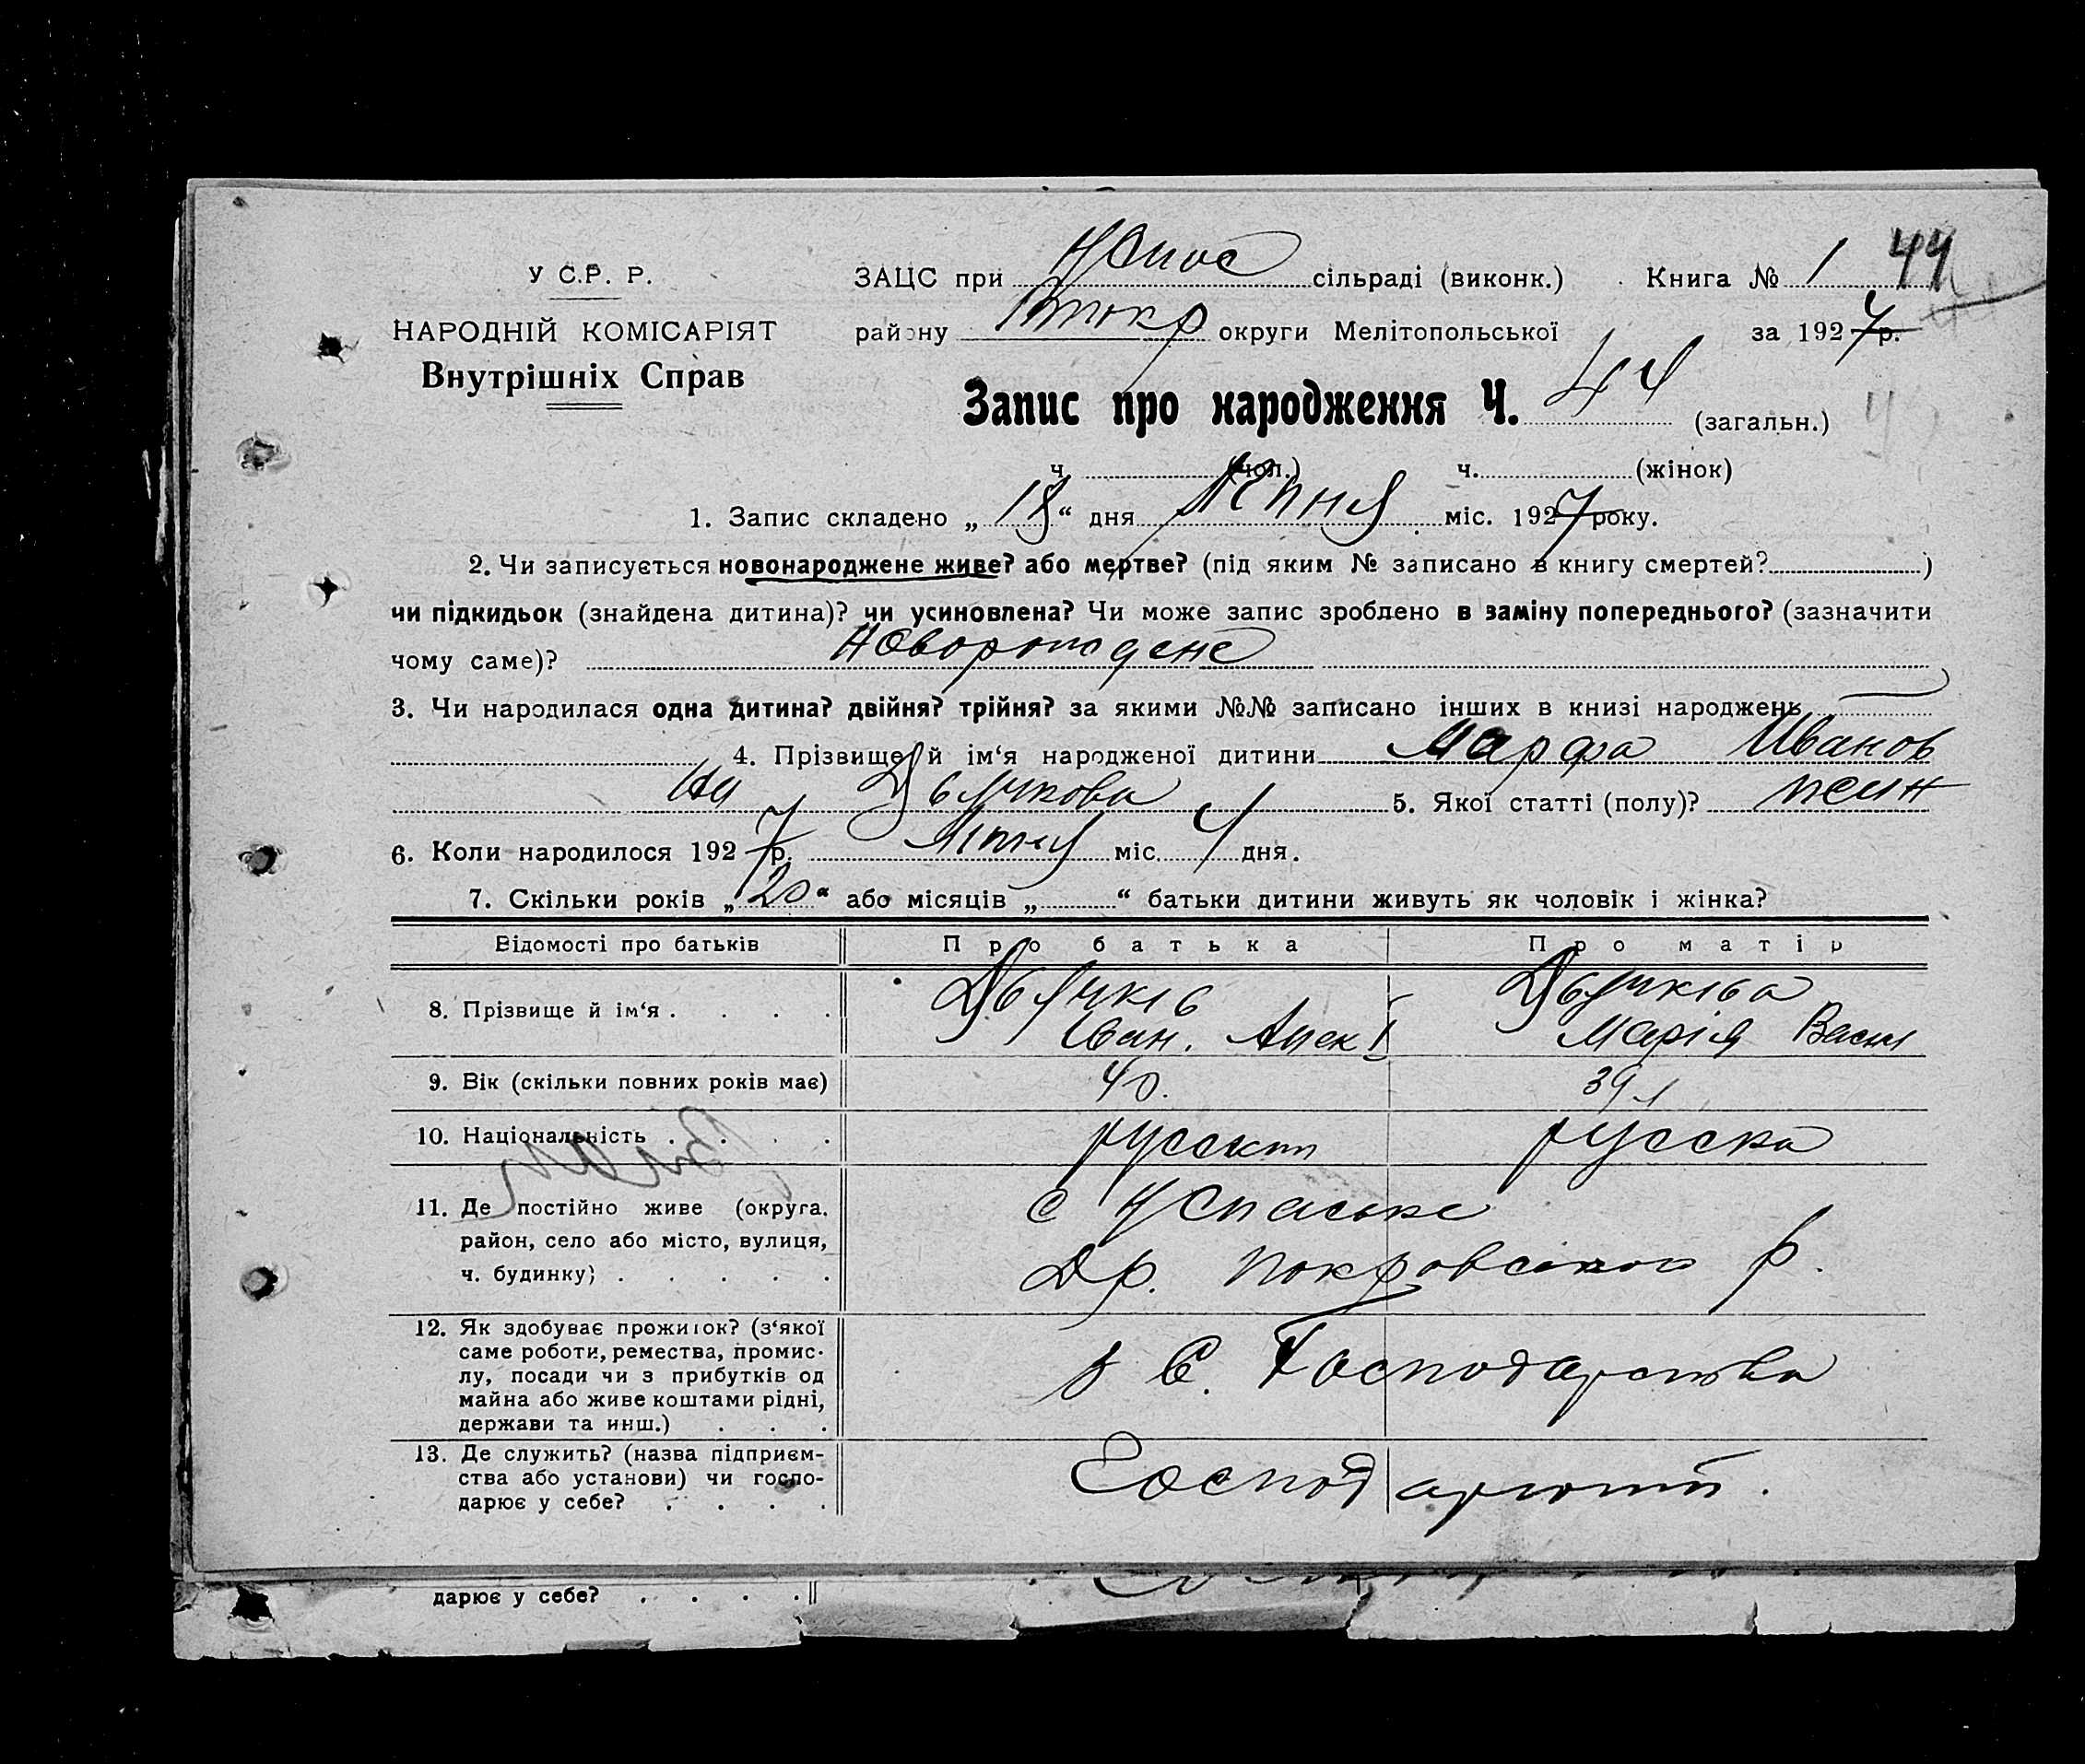 У С.Р. Р.
НАРОДНІЙ КОМІСАРІЯТ
Внутрішніх Справ
ЗАЦС при Успос сільраді (виконк.) Книга № 1 44
району Покр округи Мелітопольської за 1927 р.
Запис про народження Ч. 44 (загальн.)
ч. (чол.) ч. (жінок)
1. Запис складено „ 18 “ дня Липня міс. 1927 року.
2. Чи записується новонароджене живе? або мертве? (під яким № записано в книгу смертей? )
чи підкидьок (знайдена дитина)? чи усиновлена? Чи може запис зроблено в заміну попереднього? (зазначити
чому саме)? Новорождене
3. Чи народилася одна дитина? двійня? трійня? за якими №№ записано інших в книзі народжень
4. Прізвище й ім‘я народженої дитини Марфа Иванов
на 5. Якої статті (полу)? жин
6. Коли народилося 1927 р. Липня міс. 4 дня.
7. Скільки років „ 20 “ або місяців „ “ батьки дитини живуть як чоловік і жінка?
Відомості про батьків Про батька Про матір
8. Прізвище й ім‘я . . . .
Іван. Алек Марія Васил
9. Вік (скільки повних років має) 40. 39 л
10. Національність . . . . русский русска
11. Де постійно живе (округа, с Успаське
район, село або місто, вулиця,
ч. будинку) . . . . . Др. Покровського р.
12. Як здобуває прожиток? (з‘якої
саме роботи, ремества, промис-
лу, посади чи з прибутків од
майна або живе коштами рідні,
держави та инш.) . . . з С. Господарства
13. Де служить? (назва підприєм-
ства або установи) чи госпо-
дарює у себе? . . . . Господарюють.
дарює у себе? . . . .